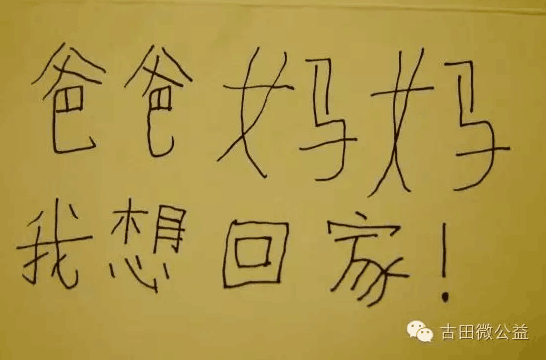 爸爸妈妈
我想回家!
古田微公益